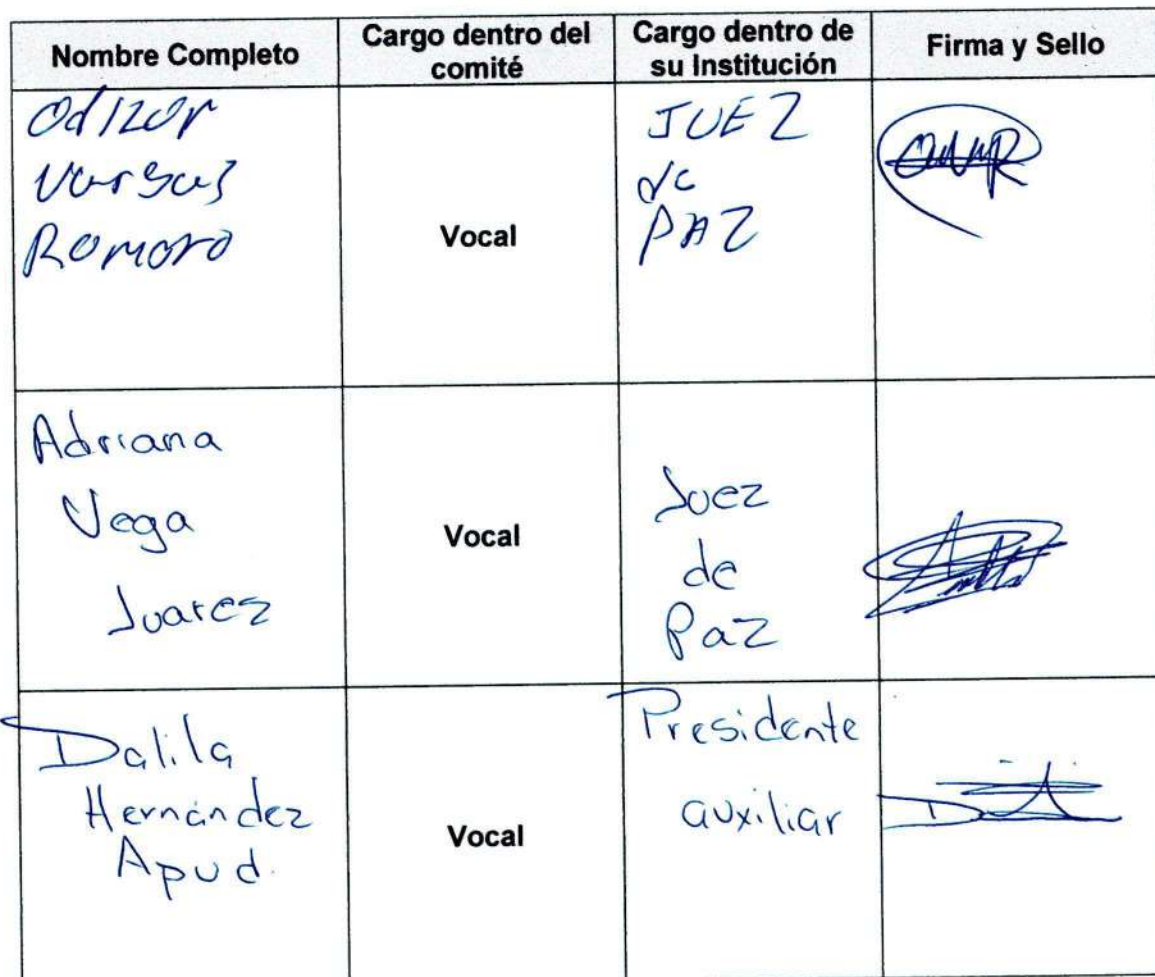 Nombre Completo
Cargo dentro del
comité
Cargo dentro de
su Institución
Firma y Sello
Odizor
Vargas
Romoro
Vocal
JUEZ
de
PAZ
Adriana
Vega
Juarez
Vocal
Juez
de
Paz
Dalila
Hernández
Apud.
Vocal
Presidente
auxiliar